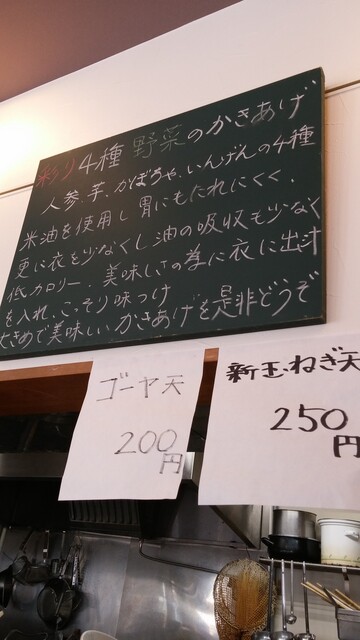 彩り4種 野菜のかきあげ
人参、芋、かぼちゃ、いんげんの4種
米油を使用し胃にもたれにくく、
更に衣を少なくし油の吸収も少なく
低カロリー、美味しさの為に衣に出汁
を入れ、こっそり味つけ
大きめで美味しいかきあげを是非どうぞ
ゴーヤ天
200
円
新玉ねぎ天
250
円